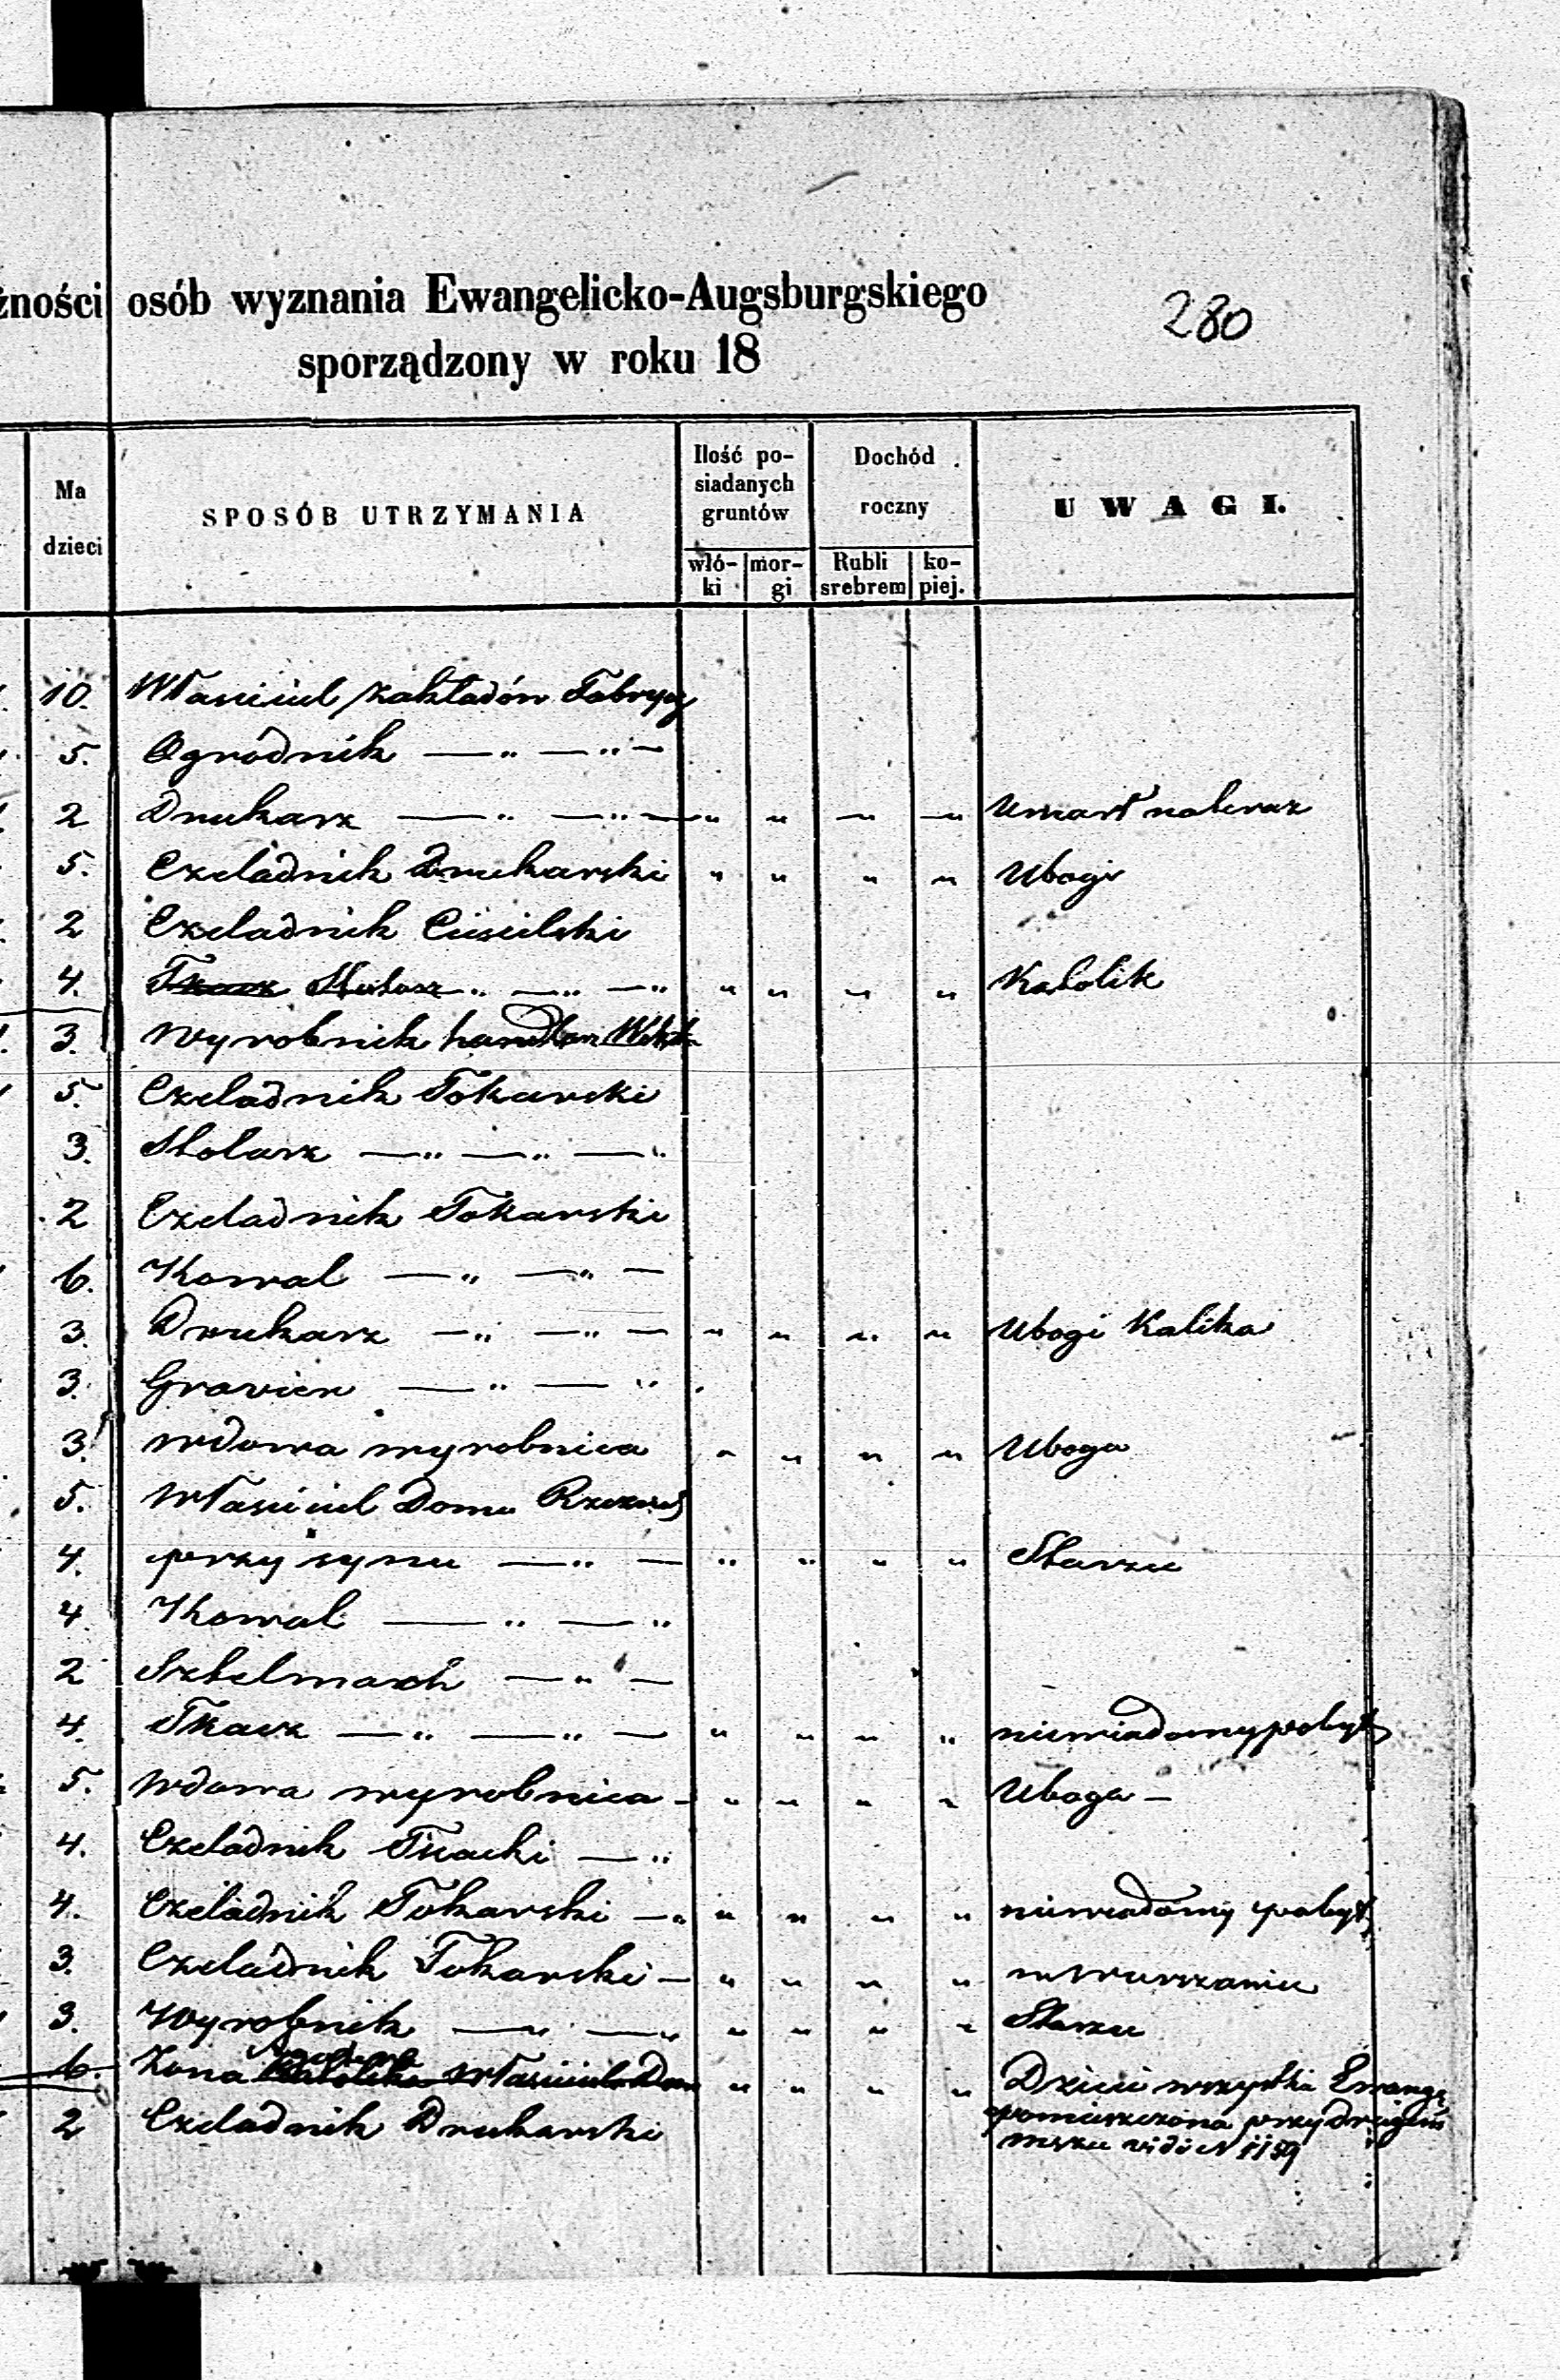 żności osób wyznania Ewangelicko-Augsburgskiego
280
sporządzony w roku 18
Ma dzieci
SPOSÓB UTRZYMANIA
Ilość posiadanych gruntów
Dochód roczny
U W A G I.
włó-ki mor-gi Rubli srebrem ko-piej.
10. Własciciel zakładów Fabrycz
5. Ogrodnik — " — " —
2 Drukarz — " — " — " " — — " Umarł nateraz
5. Czeladnik Drukarski " " " " Ubogi
2 Czeladnik Ciesielski
4. Tkacz Stolarz " — " — " " " — " Katolik
3. Wyrobnik handlarz
5. Czeladnik Tokarski
3. Stolarz — " — " — "
2 Czeladnik Tokarski
6. Kowal — " — " —
3. Drukarz — " — " — " " " " Ubogi Kalika
3. Gravier — " — "
3. Wdowa wyrobnica " " " " Uboga
5. Własciciel Domu
4. przy synu — " — " " " " Starzec
4. Kowal — " — "
2 Sztelmach — " —
4. Tkacz — " — " — " " " " niewiadomy pobyt
5. Wdowa wyrobnica — " " " " Uboga —
4. Czeladnik Tkacki — "
4. Czeladnik Tokarski — " " " " " niewiadomy pobyt
3. Czeladnik Tokarski — " " " " w Warszawie
3. Wyrobnik — " — " " " " " Starzec
6. Żona Katolika Własciciela Dom " " " " Dzieci wszystkie Ewang
2 Czeladnik Drukarski pomieszczona przy drugim
mężu vide N 1159